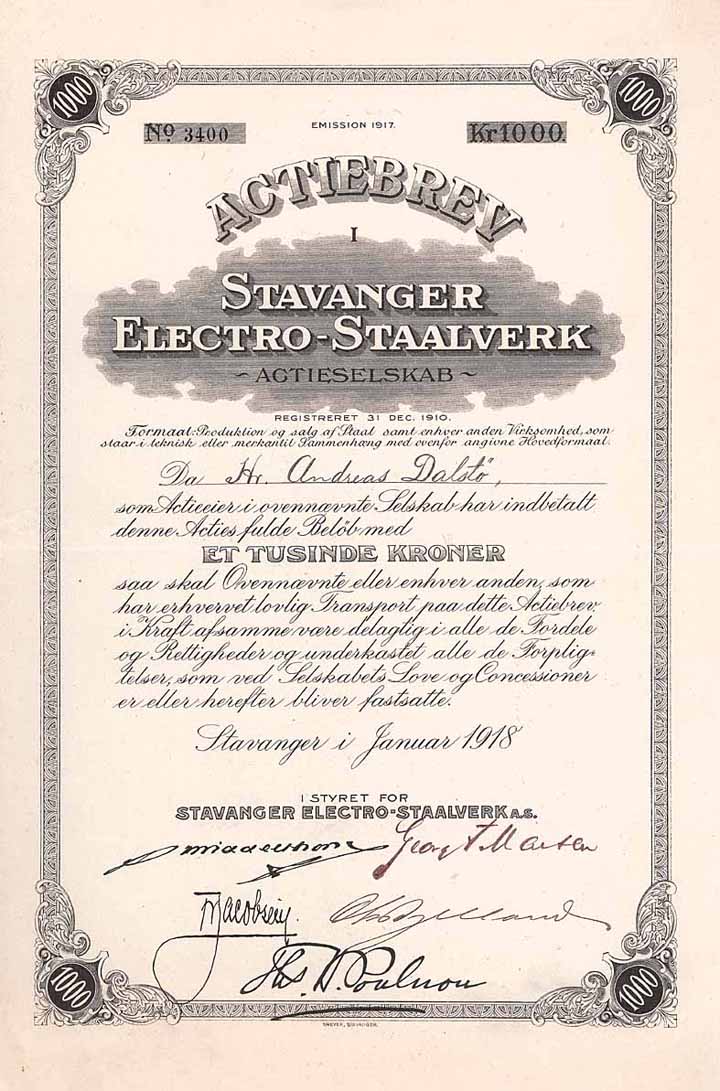 1000 1000
No 3400 EMISSION 1917. Kr 1000.
ACTIEBREV
I
STAVANGER
ELECTRO-STAALVERK
~ ACTIESELSKAB ~
REGISTRERET 31 DEC. 1910.
Formaal: Produktion og salg af Staal samt enhver anden Virksomhed, som
staar i teknisk eller merkantil Sammenhæng med ovenfor angivne Hovedformaal.
Da Hr. Andreas Dalstö,
som Actieeier i ovennævnte Selskab har indbetalt
denne Acties fulde Belöb med
ET TUSINDE KRONER
saa skal Ovennævnte eller enhver anden, som
har erhvervet lovlig Transport paa dette Actiebrev,
i Kraft af samme være delagtig i alle de Fordele
og Rettigheder og underkastet alle de Forplig-
telser, som ved Selskabets Love og Concessioner
er eller herefter bliver fastsatte.
Stavanger i Januar 1918
I STYRET FOR
STAVANGER ELECTRO-STAALVERK A.S.
Georg
Jacobsen
Poulsson
1000 1000